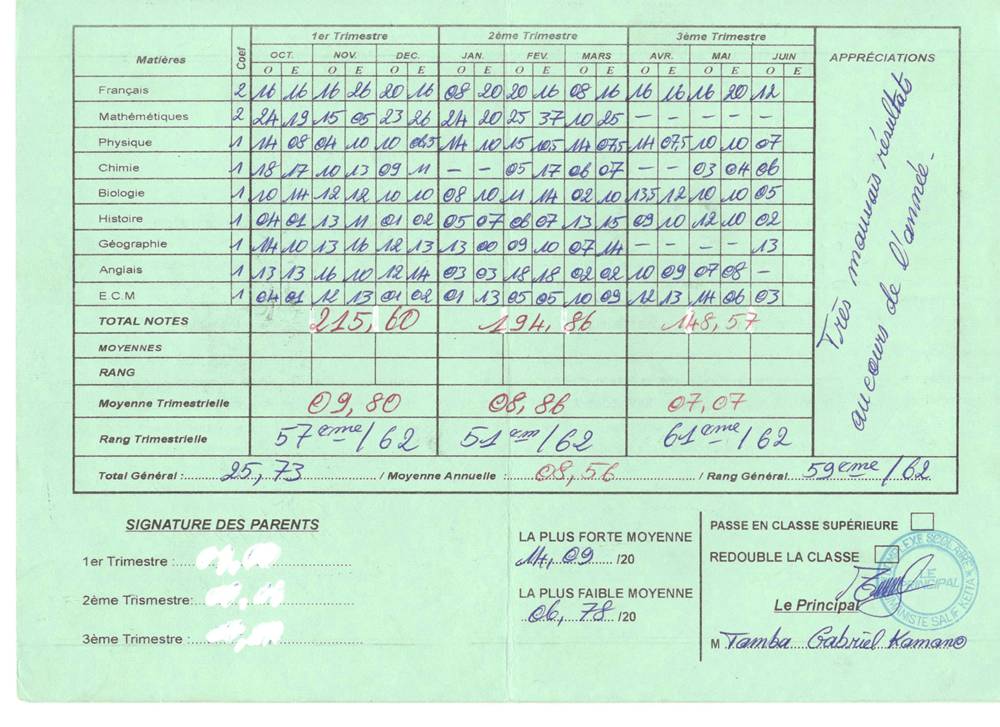 Matières Coef 1er Trimestre 2ème Trimestre 3ème Trimestre APPRÉCIATIONS
OCT. NOV. DEC. JAN. FEV. MARS AVR. MAI JUIN
O E O E O E O E O E O E O E O E O E
Français 2 16 16 16 26 20 16 08 20 20 16 08 16 16 16 16 20 12
Mathémétiques 2 24 19 15 05 23 26 24 20 25 37 10 25 - - - - -
Physique 1 14 08 04 10 10 06,5 14 10 15 10,5 14 07,5 14 07,5 10 10 07
Chimie 1 18 17 10 13 09 11 - - 05 17 06 07 - - 03 04 06
Biologie 1 10 14 12 12 10 10 08 10 11 14 02 10 13,5 12 10 10 05
Histoire 1 04 01 13 11 01 02 05 07 06 07 13 15 09 10 12 10 02
Géographie 1 14 10 13 16 12 13 13 00 09 10 07 14 - - - - 13
Anglais 1 13 13 16 10 12 14 03 03 18 18 02 02 10 09 07 08 -
E.C.M 1 04 01 12 13 01 02 01 13 05 05 10 09 12 13 14 06 03
TOTAL NOTES 215,60 194,86 148,57
MOYENNES
RANG
Moyenne Trimestrielle 09,80 08,86 07,07
Rang Trimestrielle 57ème/62 51èm/62 61ème/62
Très mauvais résultats
au cours de l'année.
Total Général : 25,73 / Moyenne Annuelle : 08,56 / Rang Général 59ème/62
SIGNATURE DES PARENTS
1er Trimestre :
2ème Trismestre:
3ème Trimestre :
LA PLUS FORTE MOYENNE
14,09 /20
LA PLUS FAIBLE MOYENNE
06,78 /20
PASSE EN CLASSE SUPÉRIEURE
REDOUBLE LA CLASSE
Le Principal
M Tamba Gabriel Kamano
LE
PRINCIPAL